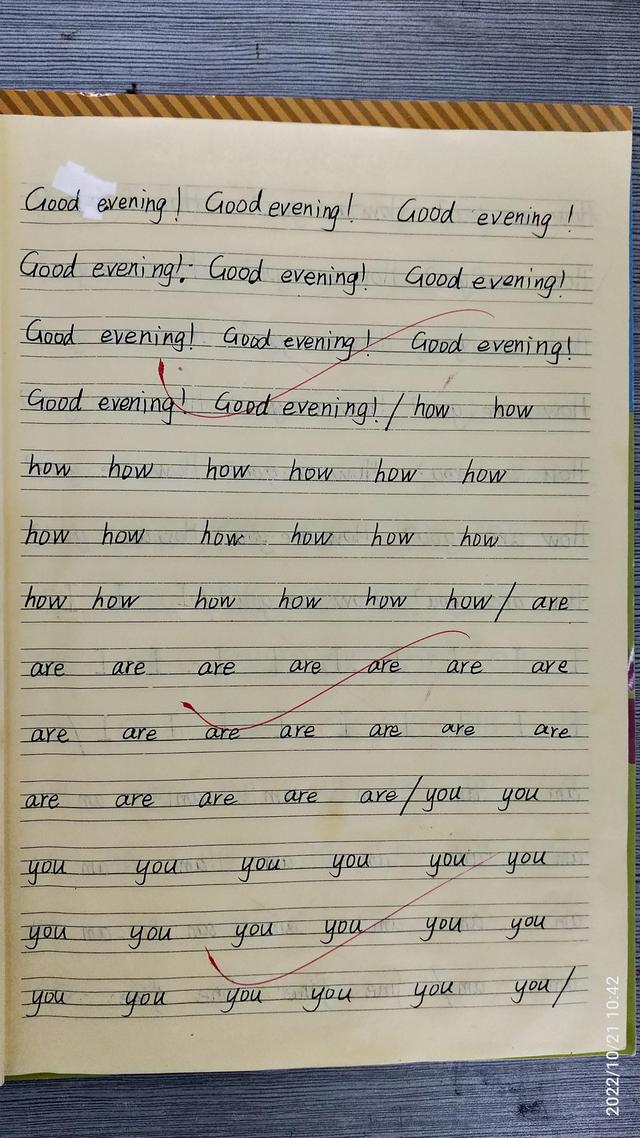 Good evening! Good evening! Good evening!
Good evening!. Good evening! Good evening!
Good evening! Good evening! Good evening!
Good evening! Good evening! / how how
how how how how how how
how how how how how how
how how how how how how / are
are are are are are are are
are are are are are are are
are are are are are / you you
you you you you you you
you you you you you you
you you you you you you /
2022/10/21 10:42